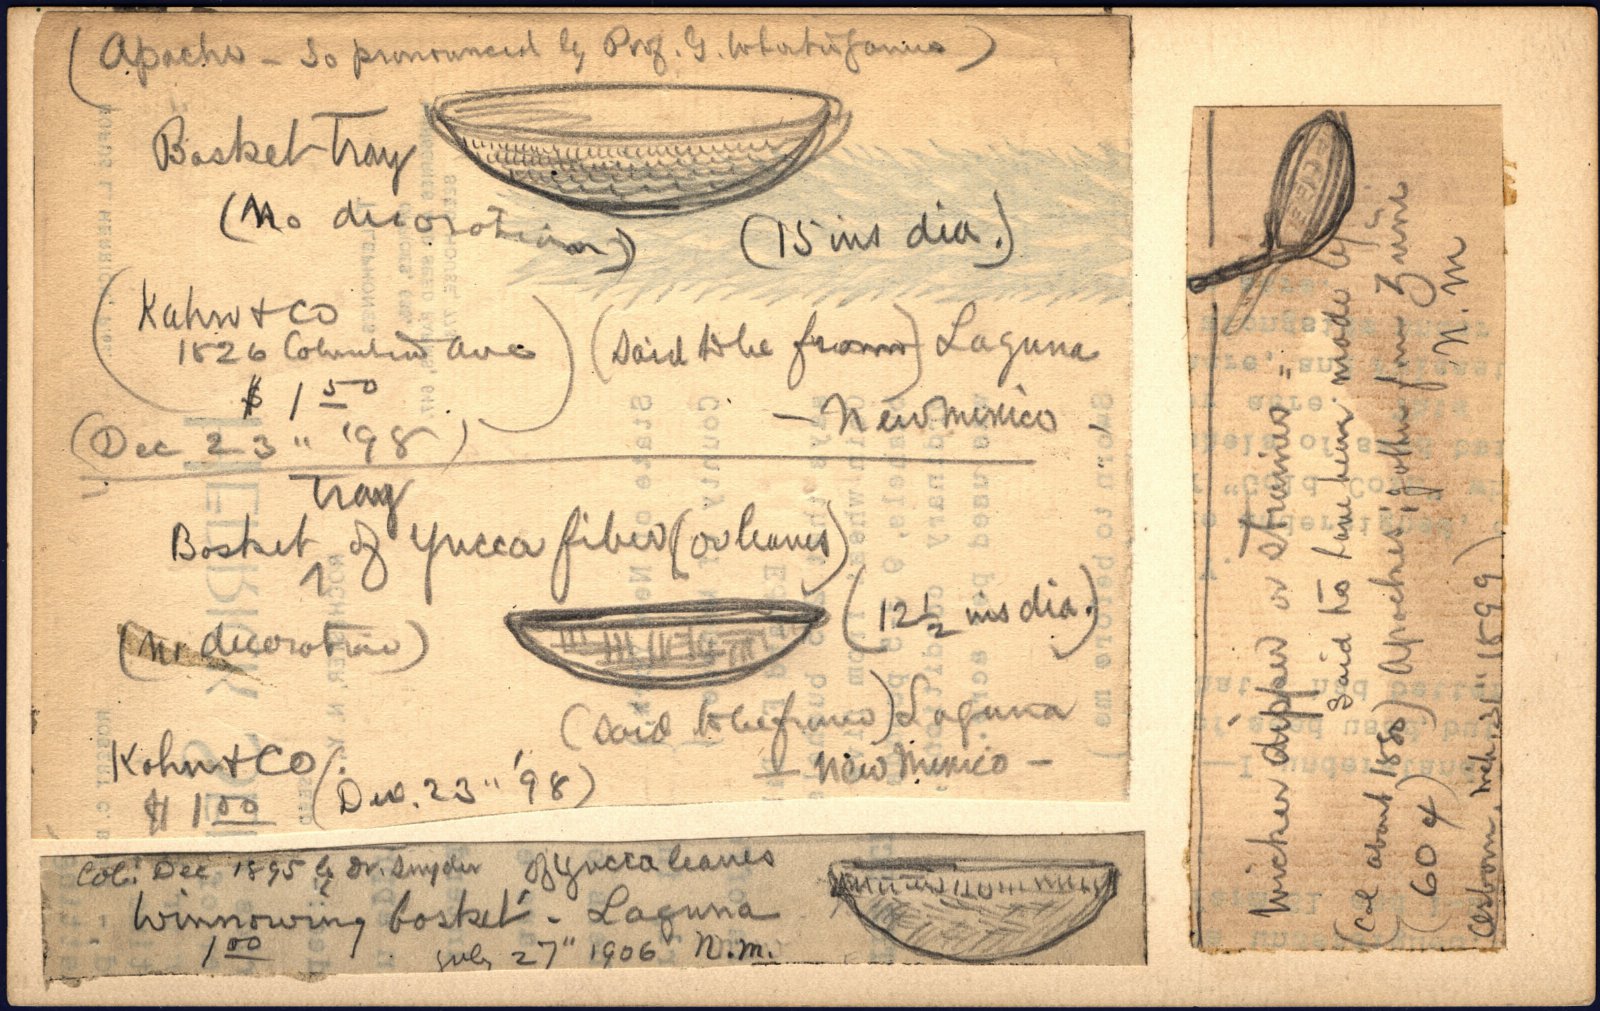 (Apache - So pronounced by Prof. G. Wharton James)
Basket-Tray
(No decoration)
(15 ins dia.)
(Kahn + Co
1826 Columbia Ave
$ 1 50
(Said to be from) Laguna
- New Mexico -
(Dec 23" '98)
Tray
Basket of Yucca fiber (or leaves)
(No decoration)
(12 1/2 ins dia.)
(Said to be from) Laguna
- New Mexico -
Kohn + Co.
$ 1 00
(Dec. 23" '98)
Col: Dec 1895 by Dr. Snyder
of Yucca leaves
Winnowing basket - Laguna
1 00
July 27" 1906 N.M.
Wicker dipper or strainer =
Said to have been made by
(Col about 1880) Apaches: gotten from Zuni
(60 ¢) N.M
Osborn, Mch. 31" 1899)